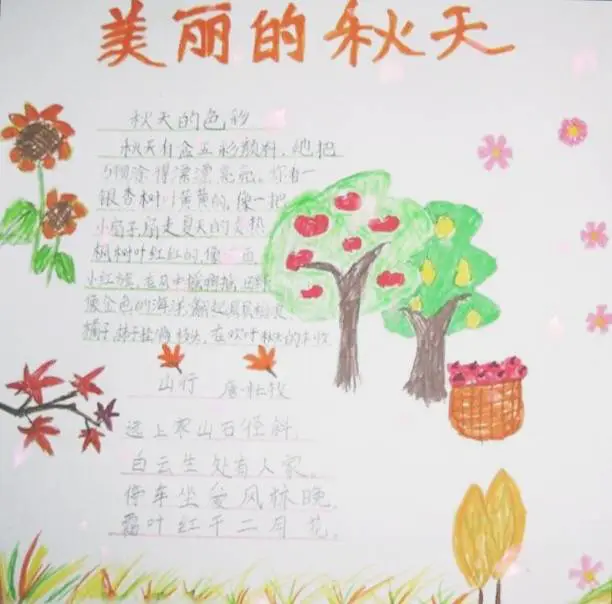 美丽的秋天
秋天的色彩
秋天有盒五彩颜料，她把
涂得漂漂亮亮。你看一
银杏树叶黄黄的，像一把
小扇子，扇走夏天的炎热
枫树叶红红的，像一面
小红旗，在
像金色的海洋，翻起
橘子、柿子挂满枝头，在欢呼秋天的丰收
山行 唐·杜牧
远上寒山石径斜，
白云生处有人家。
停车坐爱风林晚，
霜叶红于二月花。